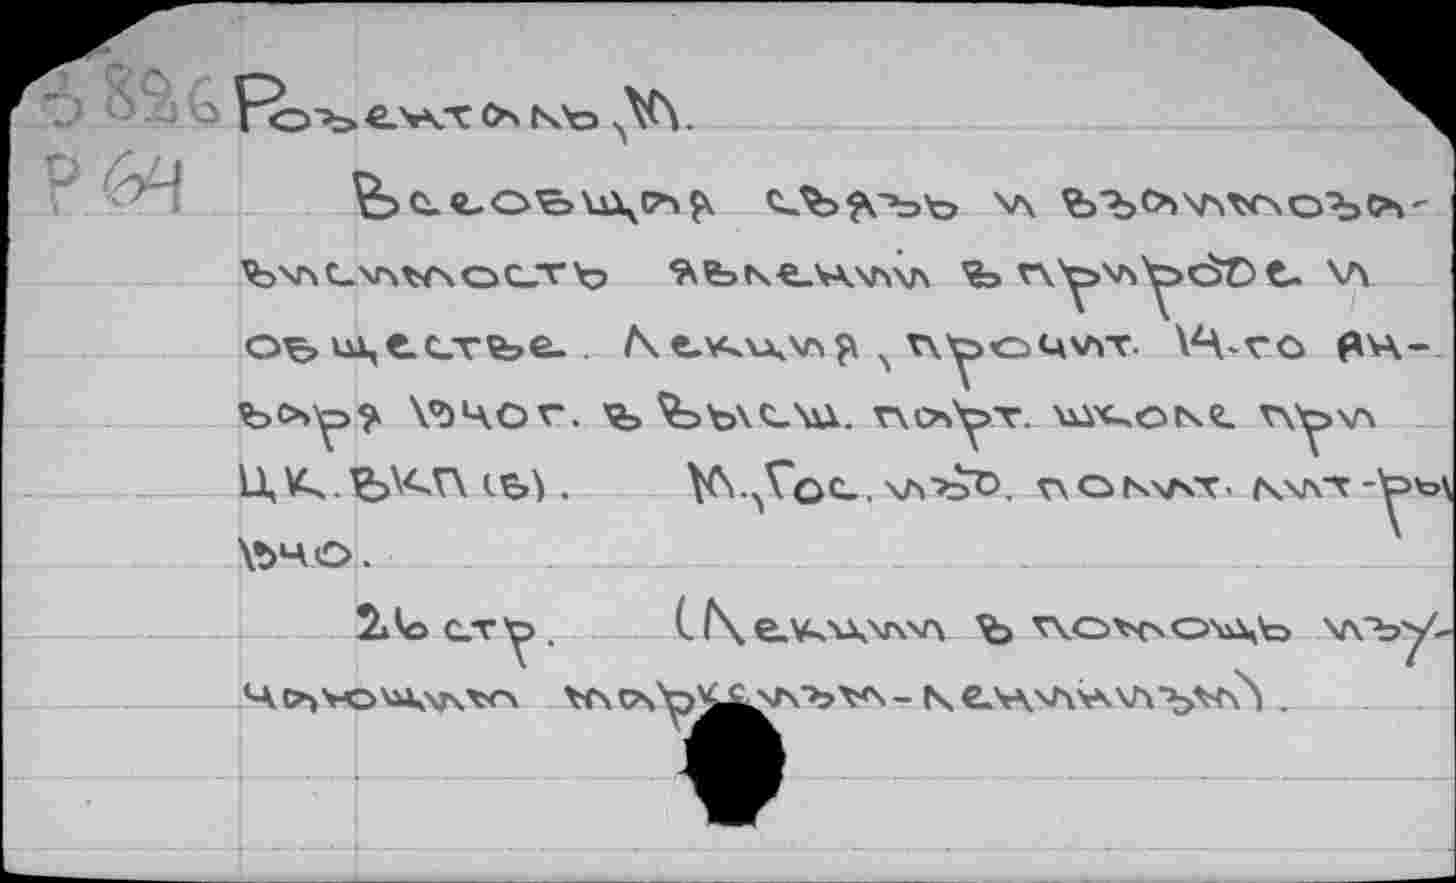 Б 826 Розенталь, М.
Р 64
Всеобщая связь и взаимозависимость явлений в природе и
обществе. Лекция, прочит. 14-го ян-
варя 1940 г. в Высш. парт. школе при
ЦК ВКП(б). М., Гос. изд. полит. лит-ры
1940.
26 стр. (Лекции в помощь изу-
чающим марксизм-ленинизм).